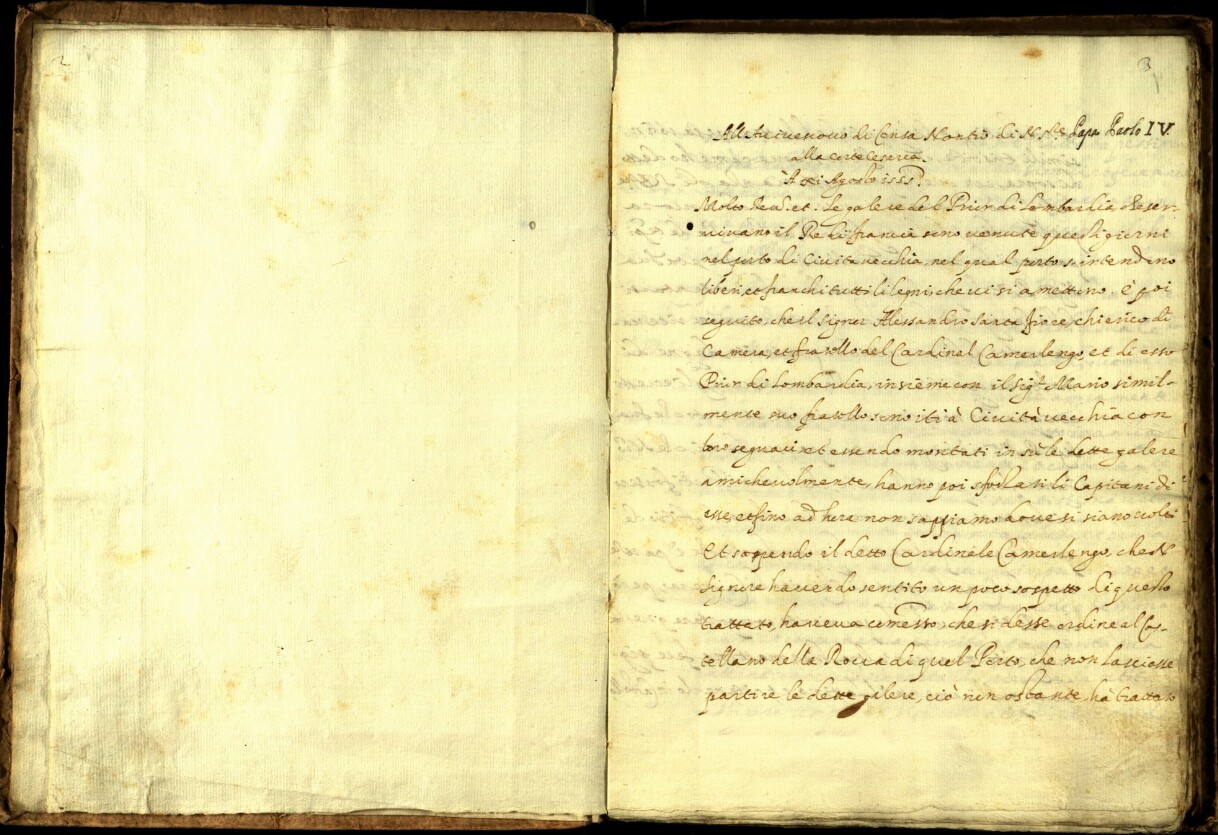 2
3
All'Arcivescovo di Consa Nontio di N. Sre Papa Paolo IV.
alla corte Cesarea.
À xi Agosto 1555.
Molto Reud. et. le galere del Prior di Lombardia che ser-
vivano il Re di francia sono venute questi giorni
nel porto di Civita vecchia, nel qual porto s'intendono
liberi, et franchi tutti li legni, che vi si amettono. è poi
seguito, che il signor Alessandro santa fiore, chierico di
Camera, et fratello del Cardinal Camerlengo, et di esso
Prior di Lombardia, insieme con il sigr. Mario simil-
mente suo fratello sono iti à Cività vecchia con
loro seguaci et essendo montati in sù le dette galere
amichevolmente, hanno poi spogliati li Capitani di
esse, et fino ad hora non sappiamo dove si siano volti
Et sapendo il detto Cardinale Camerlengo, che N.
Signore havendo sentito un poco sospetto di questo
trattato, haveva comesso, che si desse ordine al Cas-
tellano della Rocca di quel Porto, che non lasciasse
partire le dette galere, ciò non ostante, ha trattato